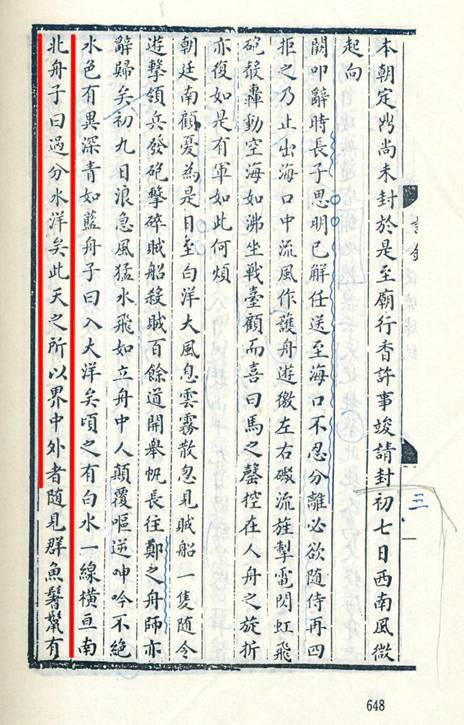 本朝定鼎尚未封於是至廟行香許事竣請封初七日西南風微
起向
闕叩辭時長子思明已觧任送至海口不忍分離必欲隨侍再四
拒之乃止出海口中流風作護舟遊徼左右礟流旌掣電閃虹飛
砲發轟動空海如沸坐戰臺顧而喜曰馬之罄控在人舟之旋折
亦復如是有軍如此何煩
朝廷南顧憂為是日至白洋大風息雲霧散忽見賊船一隻隨令
遊擊領兵發砲擊碎賊船殺賊百餘道開舉帆長往鄭之舟師亦
辭歸矣初九日浪急風猛水飛如立舟中人顛覆嘔逆呻吟不絕
水色有異深青如藍舟子曰入大洋矣頃之有白水一線橫亘南
北舟子曰過分水洋矣此天之所以界中外者隨見群魚鬐鬣有
三
一
648